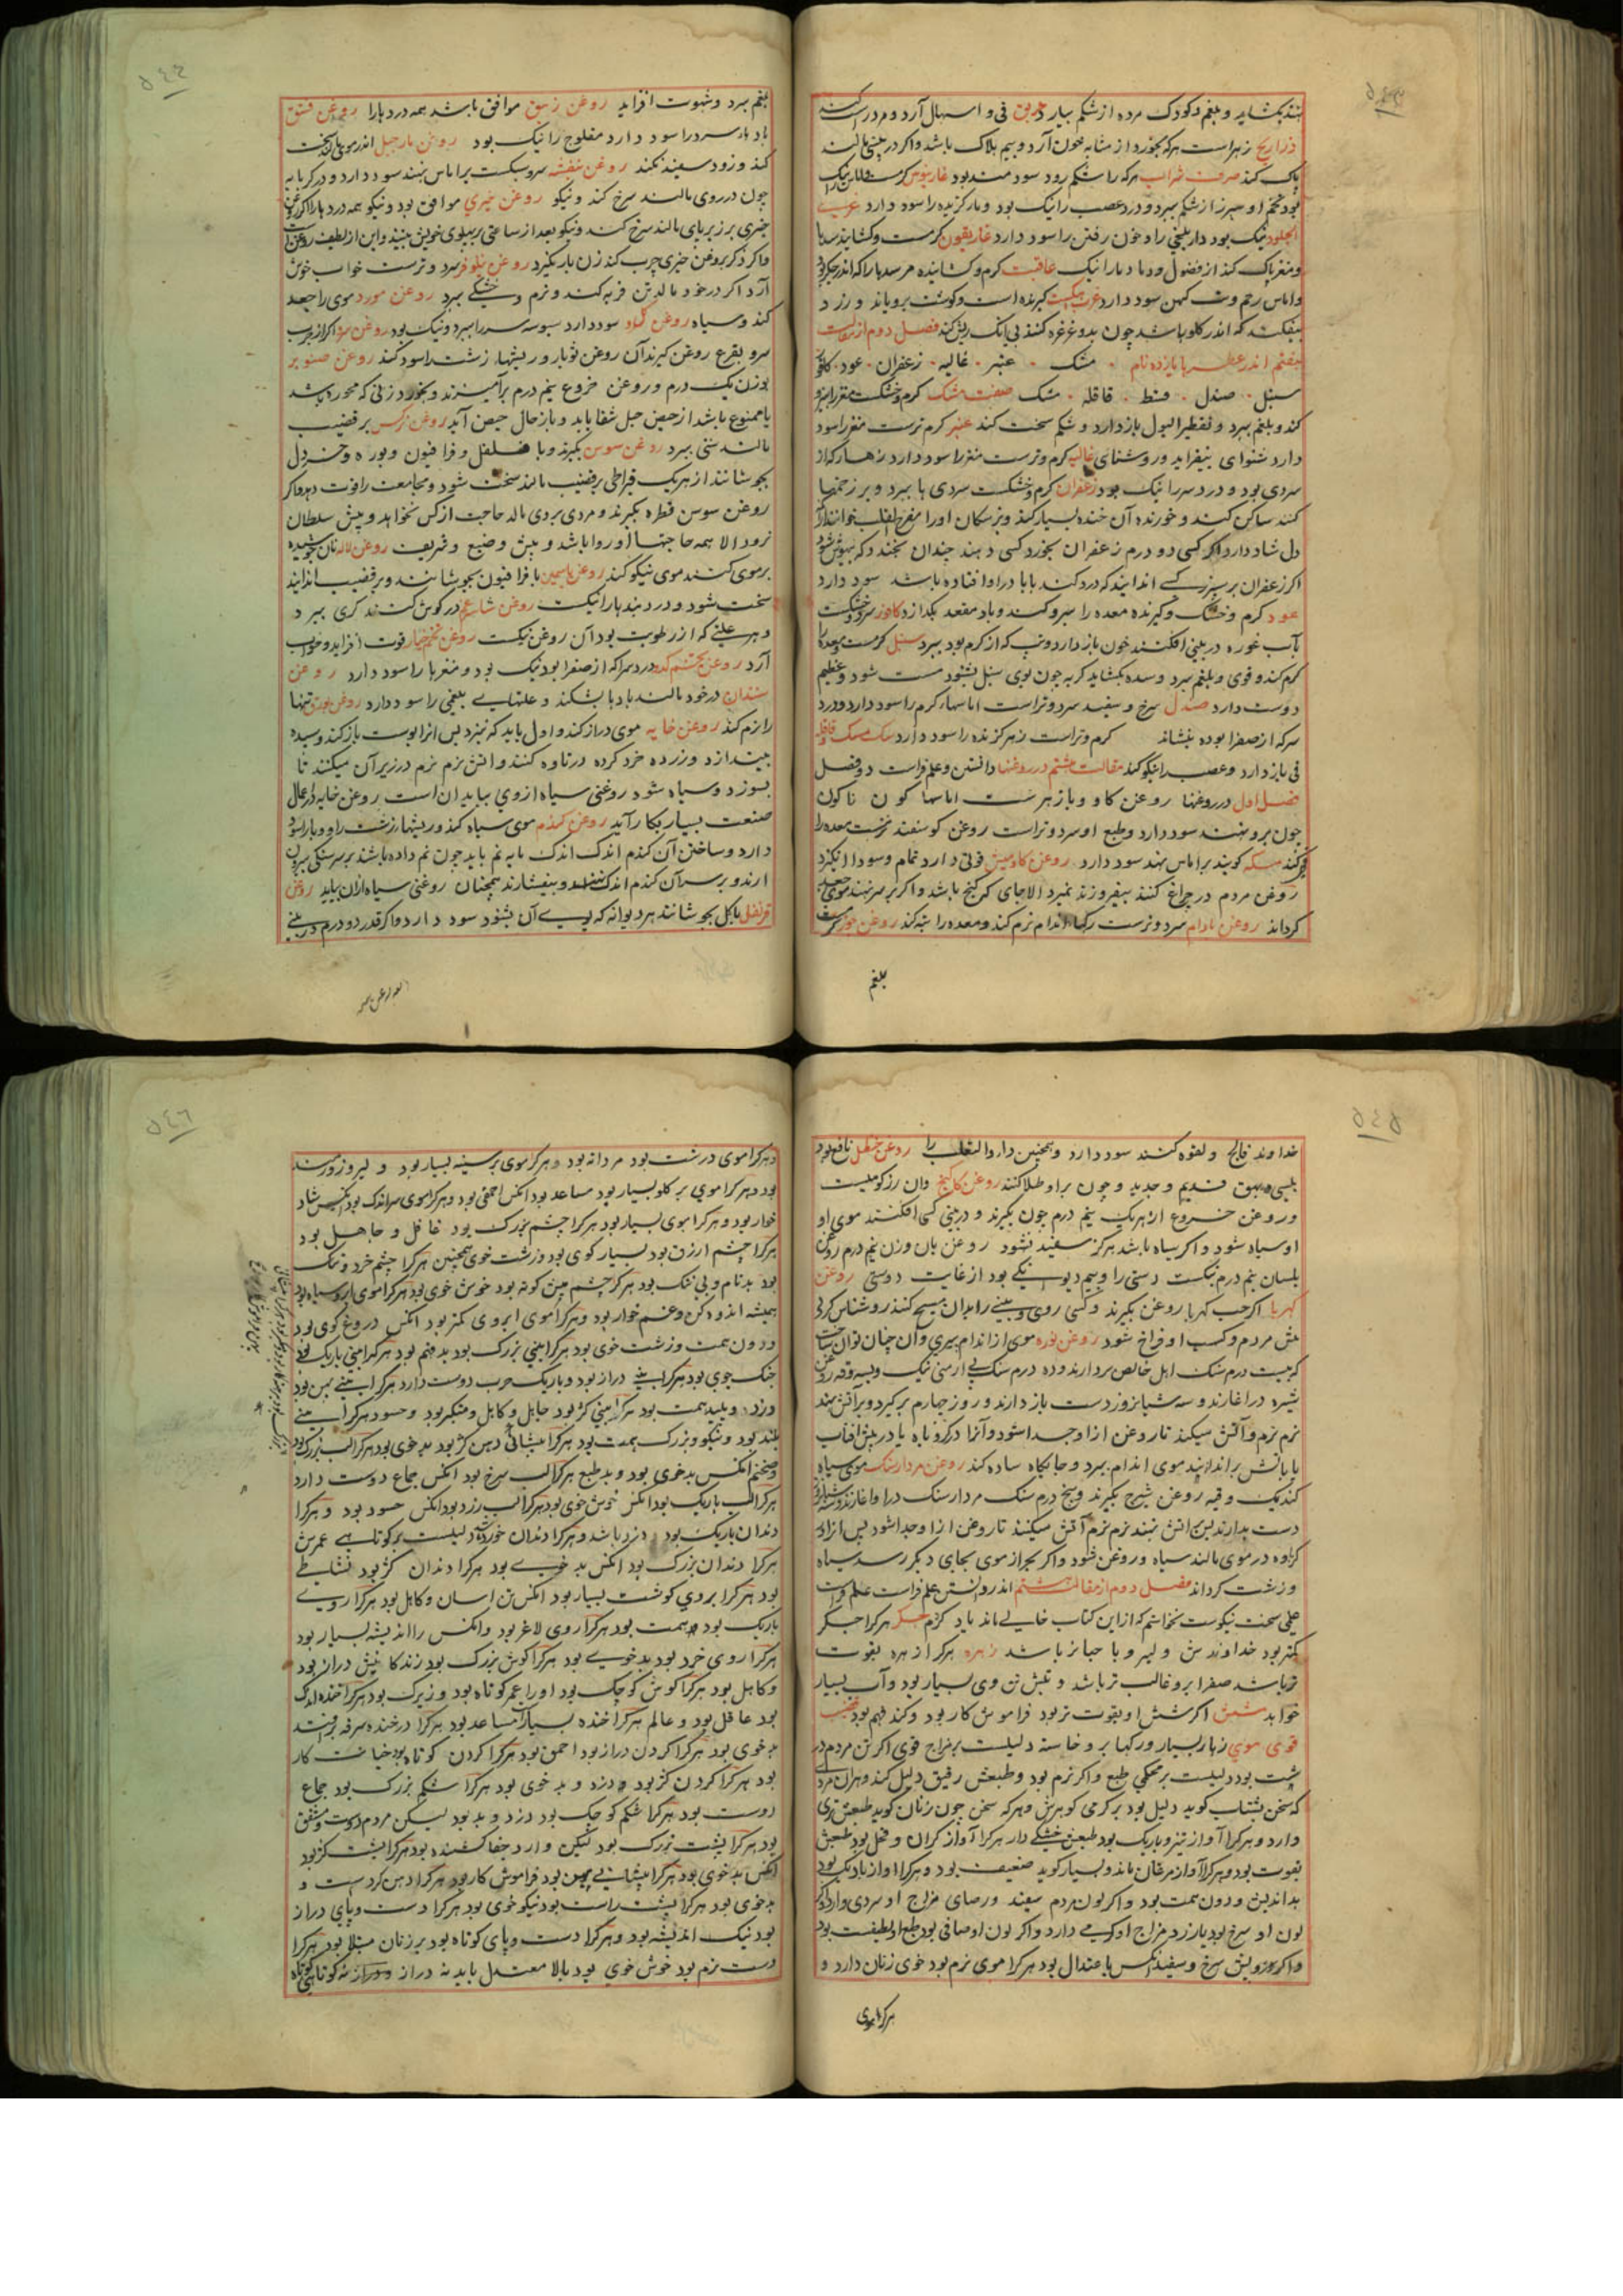 ۵۴۳
بند بکشاید و بلغم و کودک مرده از شکم بیارد خربق قی و اسهال آرد و مر درست کند
ذراریح زهر است هرکه بخورد از مثانه خون آرد و بیم هلاک باشد و اگر در بینی مالند
پاک کند هرکه را شکم رود سودمند بود
بود تخم او سپرز از شکم ببرد و درد عصب را نیک بود و مار گزیده را سود دارد
الجلود نیک بود دار بلخی را و خون رفتن را سود دارد غاریقون گرمست و گشاینده سدها
و مغز پاک کند از فضول و دمادما را نیک عاقبت گرم و گشاینده هر سدها را که اندر جگر بود
و اماس رحم و تب کهن سود دارد کیرنده است و گوشت برویاند و زرد
بیفکند که اندر گلو باشد چون بدو غرغره کنند فصل دوم از مقالت
هفتم اندر عطرها یازده نام مشک عنبر غالیه زعفران عود کافور
سنبل صندل قسط قاقله سک صفت مشک گرم و خشکست مغز را نیرو
کند و بلغم ببرد و تقطیر البول باز دارد و شکم سخت کند عنبر گرم ترست مغز را سود
دارد شنوای بیفزاید و روشنای غالیه گرم و ترست مغز را سود دارد زهار که از
سردی بود و درد سر را نیک بود زعفران گرم و خشکست سردی ها ببرد و بر زخمها
کنند ساکن کند و خورنده آن خنده بسیار کند و پزشکان او را مفرح القلب خوانند از
دل شاد دارد اگر کسی دو درم زعفران بخورد کسی دهند چندان بخندد که بیهوش شود
اگر زعفران بر سپرز کسی اندایند که درد کند یا باد را و افتاده باشد سود دارد
عود گرم و خشک و گیرنده معده را سیر و کند و باد مقعد بگدازد کافور سرد و خشکست
بآب غوره در بینی افکنند خون باز دارد و تب که از گرم بود ببرد سنبل گرمست و معده را
گرم کند و قوی و بلغم ببرد و سده بکشاید گربه چون بوی سنبل بشنود مست شود و عظیم
دوست دارد صندل سرخ و سفید سرد و تر است اماسهاء گرم را سود دارد و درد
سر که از صفرا بوده بنشاند گرم و تر است زهر گزنده را سود دارد سک مسک و قاقله
قی باز دارد و عصب را نیکو کند مقالت هشتم در روغنها دانستن و علم فراست دو فصل
فصل اول در روغنها روغن کاو و پازهرست اماسها کون ناکون
چون برو نهند سود دارد و طبع او سرد و تر است روغن کوسفند ترست معده را
قوی کند مسکه کویند بر اماس نهند سود دارد روغن کاومیش قوتی دارد تمام و سودا انگیزد
روغن مردم در چراغ کنند بیفروزند نمیرد الا جای که گنج باشد و اگر بر سر نهند موی جعد
گرداند روغن بادام سرد و ترست رگها اندام نرم کند و معده را تبه کند روغن جوز گرمست
بلغم
۵۴۴
بلغم ببرد و شهوت افزاید روغن زنبق موافق باشد همه دردها را روغن فستق
بادها سرد را سود دارد مفلوج را نیک بود روغن نارجیل اندر موی مالند سخت
کند و زود سفید نکند روغن بنفشه سرد نیکست بر اماس نهند سود دارد و در گرمابه
چون در روی مالند سرخ کند و نیکو روغن خیری موافق بود و نیکو همه دردها را اگر روغن
خیری بر زیر پای مالند سرخ کند و نیکو بعد از ساعتی بر پهلوی خویش بیند و این از لطیف روغنها است
و اگر ذکر بروغن خیری چرب کند زن بار نگیرد روغن نیلوفر سرد و ترست خواب خوش
آرد اگر در خود مالد تن فربه کند و نرم و خشکی ببرد روغن مورد موی را جعد
کند و سیاه روغن سود دارد سبوسه سر را ببرد و نیک بود روغن
سرو بقرع روغن گیرند آن روغن ثوبار و ریشهاء زشت را سود کند روغن صنوبر
بوزن یک درم و روغن خروع نیم درم برآمیزند و بخورد زنی که محروم باشد
یا ممنوع باشد از حیض حبل شفا یابد و باز حال حیض آید روغن نرکس بر قضیب
مالند سستی ببرد روغن سوسن بگیرند و با فلفل و فرافیون و بوره و خردل
بجوشانند از هریک قیراطی بر قضیب مالند سخت شود و مجامعت را قوت دهد و اگر
روغن سوسن قطره بگیرند و مردی بر وی مالد حاجت از کس نخواهد و پیش سلطان
نرود الا همه حاجتها او روا باشد و پیش وضیع و شریف روغن لاله نان بجوشیده
بر موی کنند موی نیکو کند روغن یاسمین با فرافیون بجوشانند و بر قضیب اندایند
سخت شود و دردمندها را نیکست روغن در کوش کنند کری ببرد
و هر علتی که از رطوبت بود آن روغن نیکست روغن تخم خیار قوت افزاید و خواب
آرد روغن تخم کدو درد سر را که از صفرا بود نیک بود و مغزها را سود دارد روغن
سندان در خود مالند بادها بشکند و علتهای بلغمی را سود دارد روغن بورق تنها
را نرم کند روغن خایه موی دراز کند و اول باید که بپزد پس انرا پوست باز کند و سپیده
بیندازد و زرده خرد کرده در تاوه کنند و اتش نرم نرم در زیر آن میکنند تا
بسوزد و سیاه شود روغنی سیاه از وی بیاید ان است روغن خایه در اعمال
صنعت بسیار بکار آید روغن گندم موی سیاه کند و ریشهاء زخمت را و وبا را سود
دارد و ساختن آن گندم اندک اندک مایه نم باید چون نم داده باشند بر سر سنگی بیرون
ارند و بر سر آن گندم اندک و بیفشارند همچنان روغنی سیاه ازان بیاید روغن
قرنفل با گل بجوشانند هر دیوانه که بوی آن بشنود سود دارد و اگر قدر دو درم در بینی
۵۴۵
خداوند فالج و لقوه کنند سود دارد و همچنین دار و الثعلب را روغن حنظل نافع بود
بلسی و بهق قدیم و جدید و چون بر او طلا کنند روغن وان
و روغن خروع از هریک نیم درم چون بگیرند و در بینی کسی افکنند موی او
او سیاه شود و اگر سیاه باشد هرگز سفید نشود روغن بان وزن نیم درم روغن
بلسان نیم درم نیکست دستی را و بیم دیوانگی بود از غایت دوستی روغن
کهربا اگر حب کهربا روغن بگیرند و کسی روی و بینی را بدان مسح کند روشناس گردد
پیش مردم و کسب او فراخ شود روغن نوره موی از اندام ببری و آن چنان توان ساخت
که بیست درم سنک اهک خالص بردارند و ده درم سنک زرنیخ ارمنی نیک و بیست وقیه روغن
شیره در اغارند و سه شبانروز دست باز دارند و روز چهارم برگیرد و بر آتش نهند
نرم نرم و آتش میکند تا روغن از او جدا شود و آنرا در کرمابه یا در پیش افتاب
یا بآتش بر اندایند موی اندام ببرد و جایگاه ساده کند روغن مردارسنک موی سیاه
کند یک وقیه روغن شیرج بگیرند و پنج درم سنک مردارسنک درو اغارند و سه شبانروز
دست بدارند پس بر اتش نهند نرم نرم آتش میکنند تا روغن ازا و جدا شود پس ازان
کراوه در موی مالند سیاه و روغن شود و اگر بجز از موی بجای دیگر رسد سیاه
و زشت گرداند فصل دوم از مقالت هشتم اندر دانستن علم فراست علم فراست
علمی سخت نیکوست نخواستم که از این کتاب خالی ماند یاد کردم جگر هر کرا جگر
گرمتر بود خداوندش دلیر و با حیا تر باشد زهره هر کرا زهره بقوت
تر باشد صفرا برو غالب تر باشد و تپش تن وی بسیار بود و آب بسیار
خواهد شش اگر شش او بقوت تر بود فراموش کار بود و کند فهم بود
قوی موی زهار بسیار و رگها برو خاسته دلیلست بر مزاج قوی اگر تن مردم در
شت بود دلیلست بر محکمی طبع و اگر نرم بود و طبعش رقیق دلیل کند و هران مرد
که سخن بشتاب کوید دلیل بود بر گرمی گوهرش و هر که سخن چون زنان کوید طبعش تری
دارد و هر کرا آواز تیز و باریک بود طبعش خشکی دارد هر کرا آواز گران و فحل بود طبعش
بقوت بود و هر کرا آواز مرغان ماند و بسیار کوید ضعیف بود و هر کرا آواز باریک بود
بداندیش و دون همت بود و اگر لون مردم سفید و رصاصی مزاج او سردی دارد و اگر
لون او سرخ بود یا زرد مزاج او گرمی دارد و اگر لون او صافی بود طبع او لطیفست بود
و اگر رویش سرخ و سفید انکس با عتدال بود هر کرا موی نرم بود خوی زنان دارد و
هر کرا موی
۵۴۶
و هر کرا موی درشت بود مردانه بود و هر کرا موی بر سینه بسیار بود دلیر و زورمند
بود و هر کرا موی بر گلو بسیار بود مساعد بود انکس احمق بود و هر کرا موی سر اندک بود انکس شاد
خوار بود و هر کرا موی بسیار بود هر کرا چشم بزرک بود غافل و جاهل بود
هر کرا چشم ازرق بود بسیار کوی بود و زشت خوی همچنین هر کرا چشم خرد و تنک
بود بدنام و بی ننک بود هر کرا چشم بین کوته بود خوش خوی بود هر کرا موی ابرو سیاه بود
همیشه اندوهگن و غمخوار بود و هر کرا موی ابروی کمتر بود انکس دروغ کوی بود
و دون همت و زشت خوی بود هر کرا بینی بزرک بود بد فهم بود هر کرا بینی باریک بود
جنک جوی بود هر کرا بینی دراز بود و باریک حرب دوست دارد هر کرا بینی پهن بود
دزد و پلید همت بود هر کرا بینی کژ بود جاهل و کاهل و متکبر بود و حسود هر کرا بینی
بلند بود و نیکو و بزرک همت بود هر کرا پیشانی و دهن کژ بود بد خوی بود هر کرا لب بزرک بود
و ضخیم انکس بدخوی بود و بد طبع هر کرا لب سرخ بود انکس جماع دوست دارد
هر کرا لب باریک بود انکس خوش خوی بود هر کرا لب زرد بود انکس حسود بود و هر کرا
دندان باریک بود دزد باشد و هر کرا دندان خورده دلیلست بر کوتاهی عمرش
هر کرا دندان بزرک بود انکس بد خوی بود هر کرا دندان کژ بود نشایطی
بود هر کرا بر روی گوشت بسیار بود انکس تن اسان و کاهل بود هر کرا روی
باریک بود همت بود هر کرا روی لاغر بود و انکس را اندیشه بسیار بود
هر کرا روی خرد بود بد خوی بود هر کرا کوش بزرک بود زندکانیش دراز بود
و کاهل بود هر کرا کوش کوچک بود او را عمر کوتاه بود و زیرک بود هر کرا خنده اندک
بود عاقل بود و عالم هر کرا خنده بسیار مساعد بود هر کرا در خنده سرفه بر افتد
بد خوی بود هر کرا کردن دراز بود احمق بود هر کرا کردن کوتاه بود خیانت کار
بود هر کرا کردن کژ بود دزد و بد خوی بود هر کرا شکم بزرک بود جماع
دوست بود هر کرا شکم کوچک بود دزد و بد بود لیکن مردم دوست و مشفق
بود هر کرا پشت بزرک بود لیکن وار و جفا کشنده بود هر کرا پشت کژ بود
انکس بد خوی بود هر کرا پیشانی پهن بود فراموش کار بود هر کرا دهن گردست و
بد خوی بود هر کرا پشت راست بود نیکو خوی بود هر کرا دست و پای دراز
بود نیک اندیشه بود و هر کرا دست و پای کوتاه بود بر زنان مبتلا بود هر کرا
دست نرم بود خوش خوی بود بالا معتدل باید نه دراز نه کوتاه